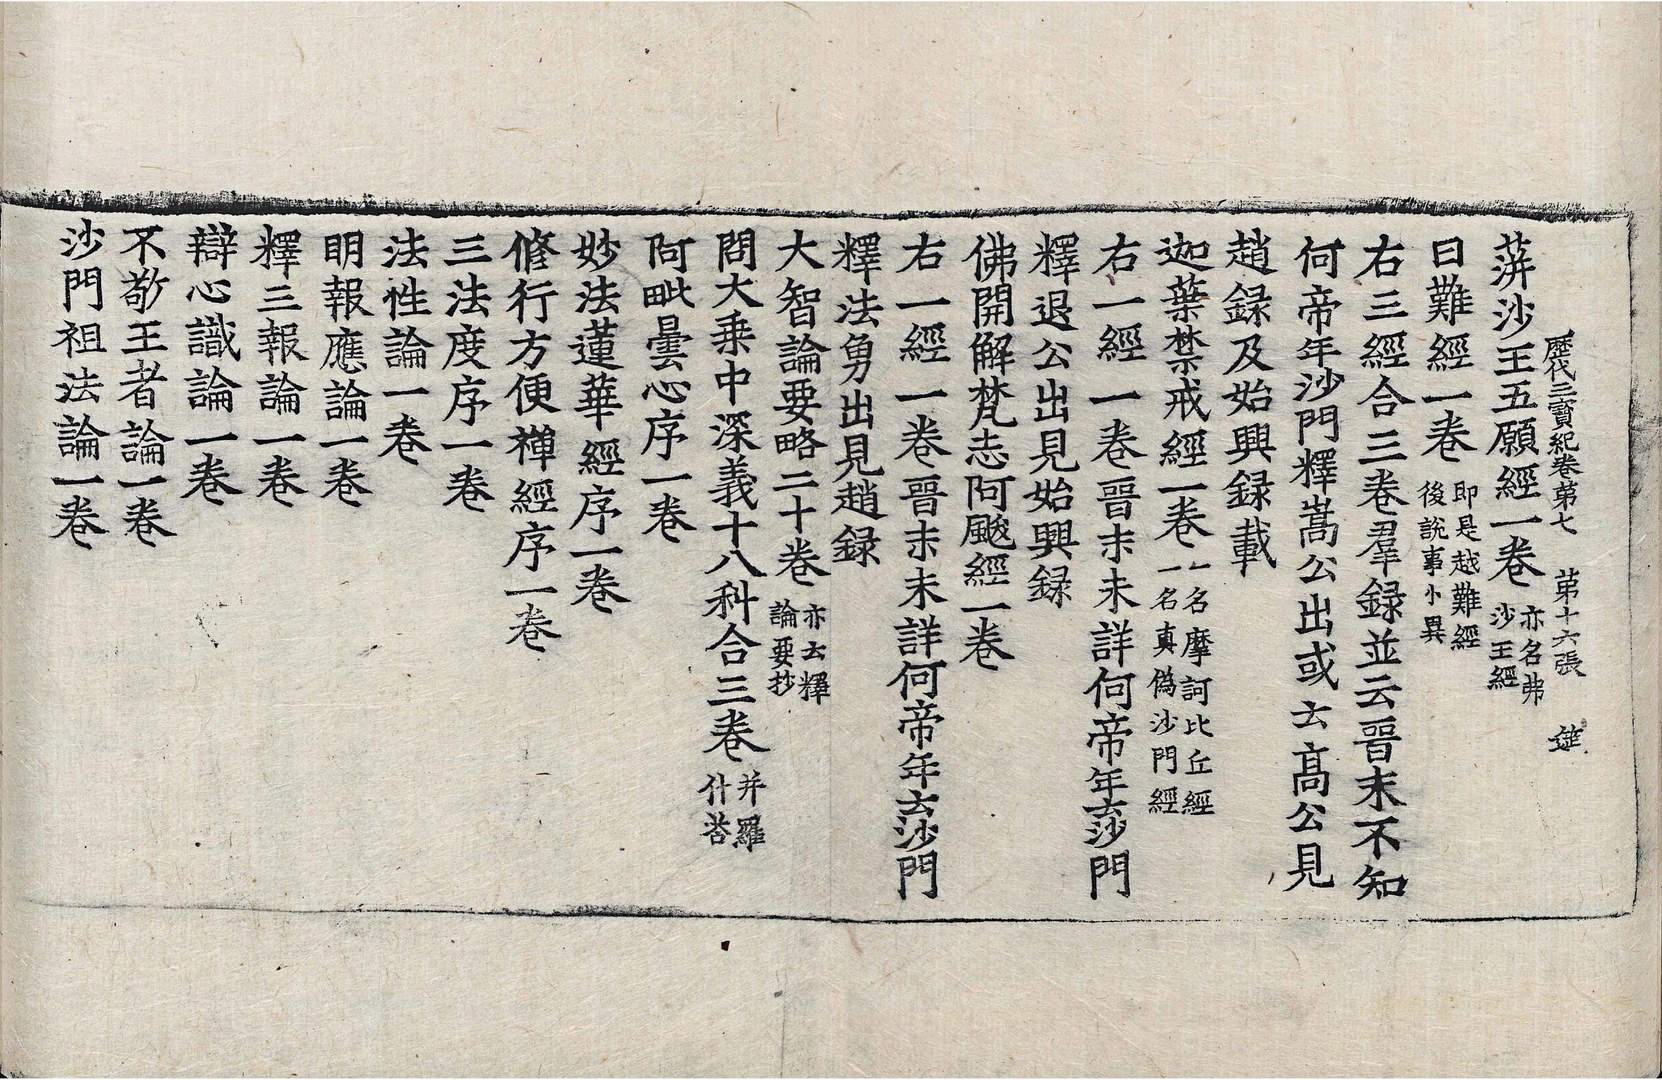 歷代三寶紀卷第七 第十六張 筵
蓱沙王五願經一卷 亦名弗沙王經
日難經一卷 即是越難經後說事小異
右三經合三卷羣録並云晉末不知
何帝年沙門釋嵩公出或云高公見
趙録及始興録載
迦葉禁戒經一卷 一名摩訶比丘經一名真偽沙門經
右一經一卷晉末未詳何帝年云沙門
釋退公出見始興録
佛開解梵志阿颰經一卷
右一經一卷晉末未詳何帝年云沙門
釋法勇出見趙録
大智論要略二十卷 亦云釋論要抄
問大乗中深義十八科合三卷 并羅什荅
阿毗曇心序一卷
妙法蓮華經序一卷
修行方便禪經序一卷
三法度序一卷
法性論一卷
明報應論一卷
釋三報論一卷
辯心識論一卷
不敬王者論一卷
沙門袒法論一卷